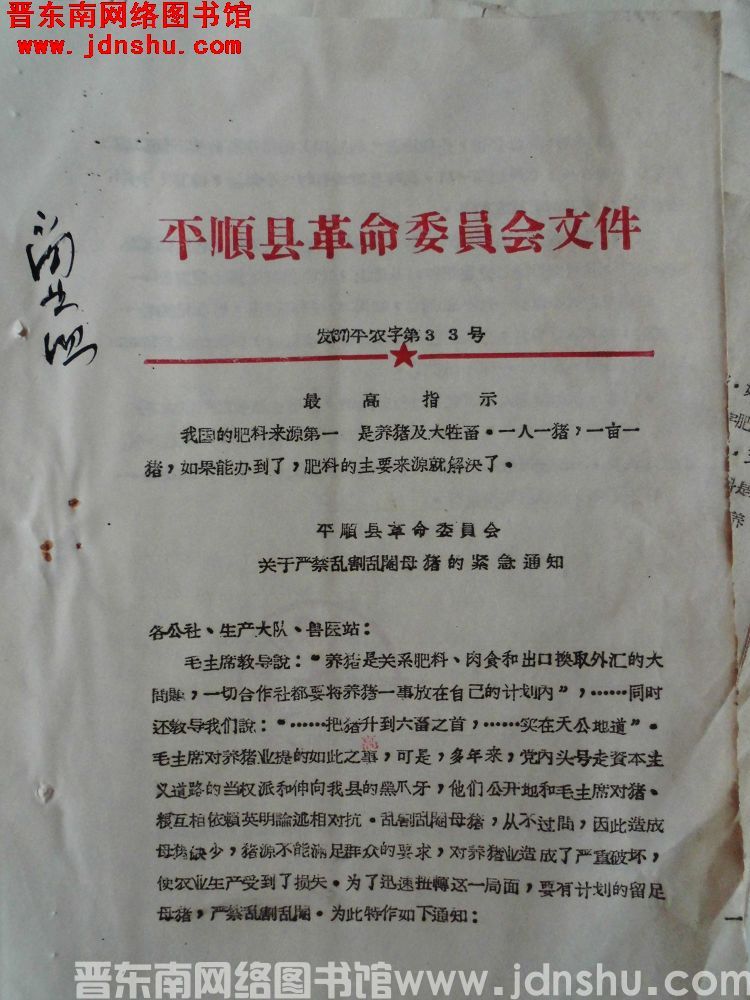 晋东南网络图书馆
www.jdnshu.com
平順县革命委員会文件
发(67)平农字第33号
最高指示
我国的肥料来源第一 是养猪及大牲畜。一人一猪，一亩一
猪，如果能办到了，肥料的主要来源就解决了。
平順县革命委員会
关于严禁乱割乱阉母猪的紧急通知
各公社、生产大队、兽医站：
毛主席教导說：“养猪是关系肥料、肉食和出口換取外汇的大
問題，一切合作社都要将养猪一事放在自己的計划內”，……同时
还教导我們說：“……把猪升到六畜之首，……实在天公地道”。
毛主席对养猪业提的如此之高，可是，多年来，党內头号走資本主
义道路的当权派和伸向我县的黑爪牙，他們公开地和毛主席对猪、
粮互相依賴英明論述相对抗。乱割乱阉母猪，从不过問，因此造成
母猪缺少，猪源不能滿足群众的要求，对养猪业造成了严重破坏，
使农业生产受到了損失。为了迅速扭轉这一局面，要有計划的留足
母猪，严禁乱割乱阉。为此特作如下通知：
晋东南网络图书馆www.jdnshu.com